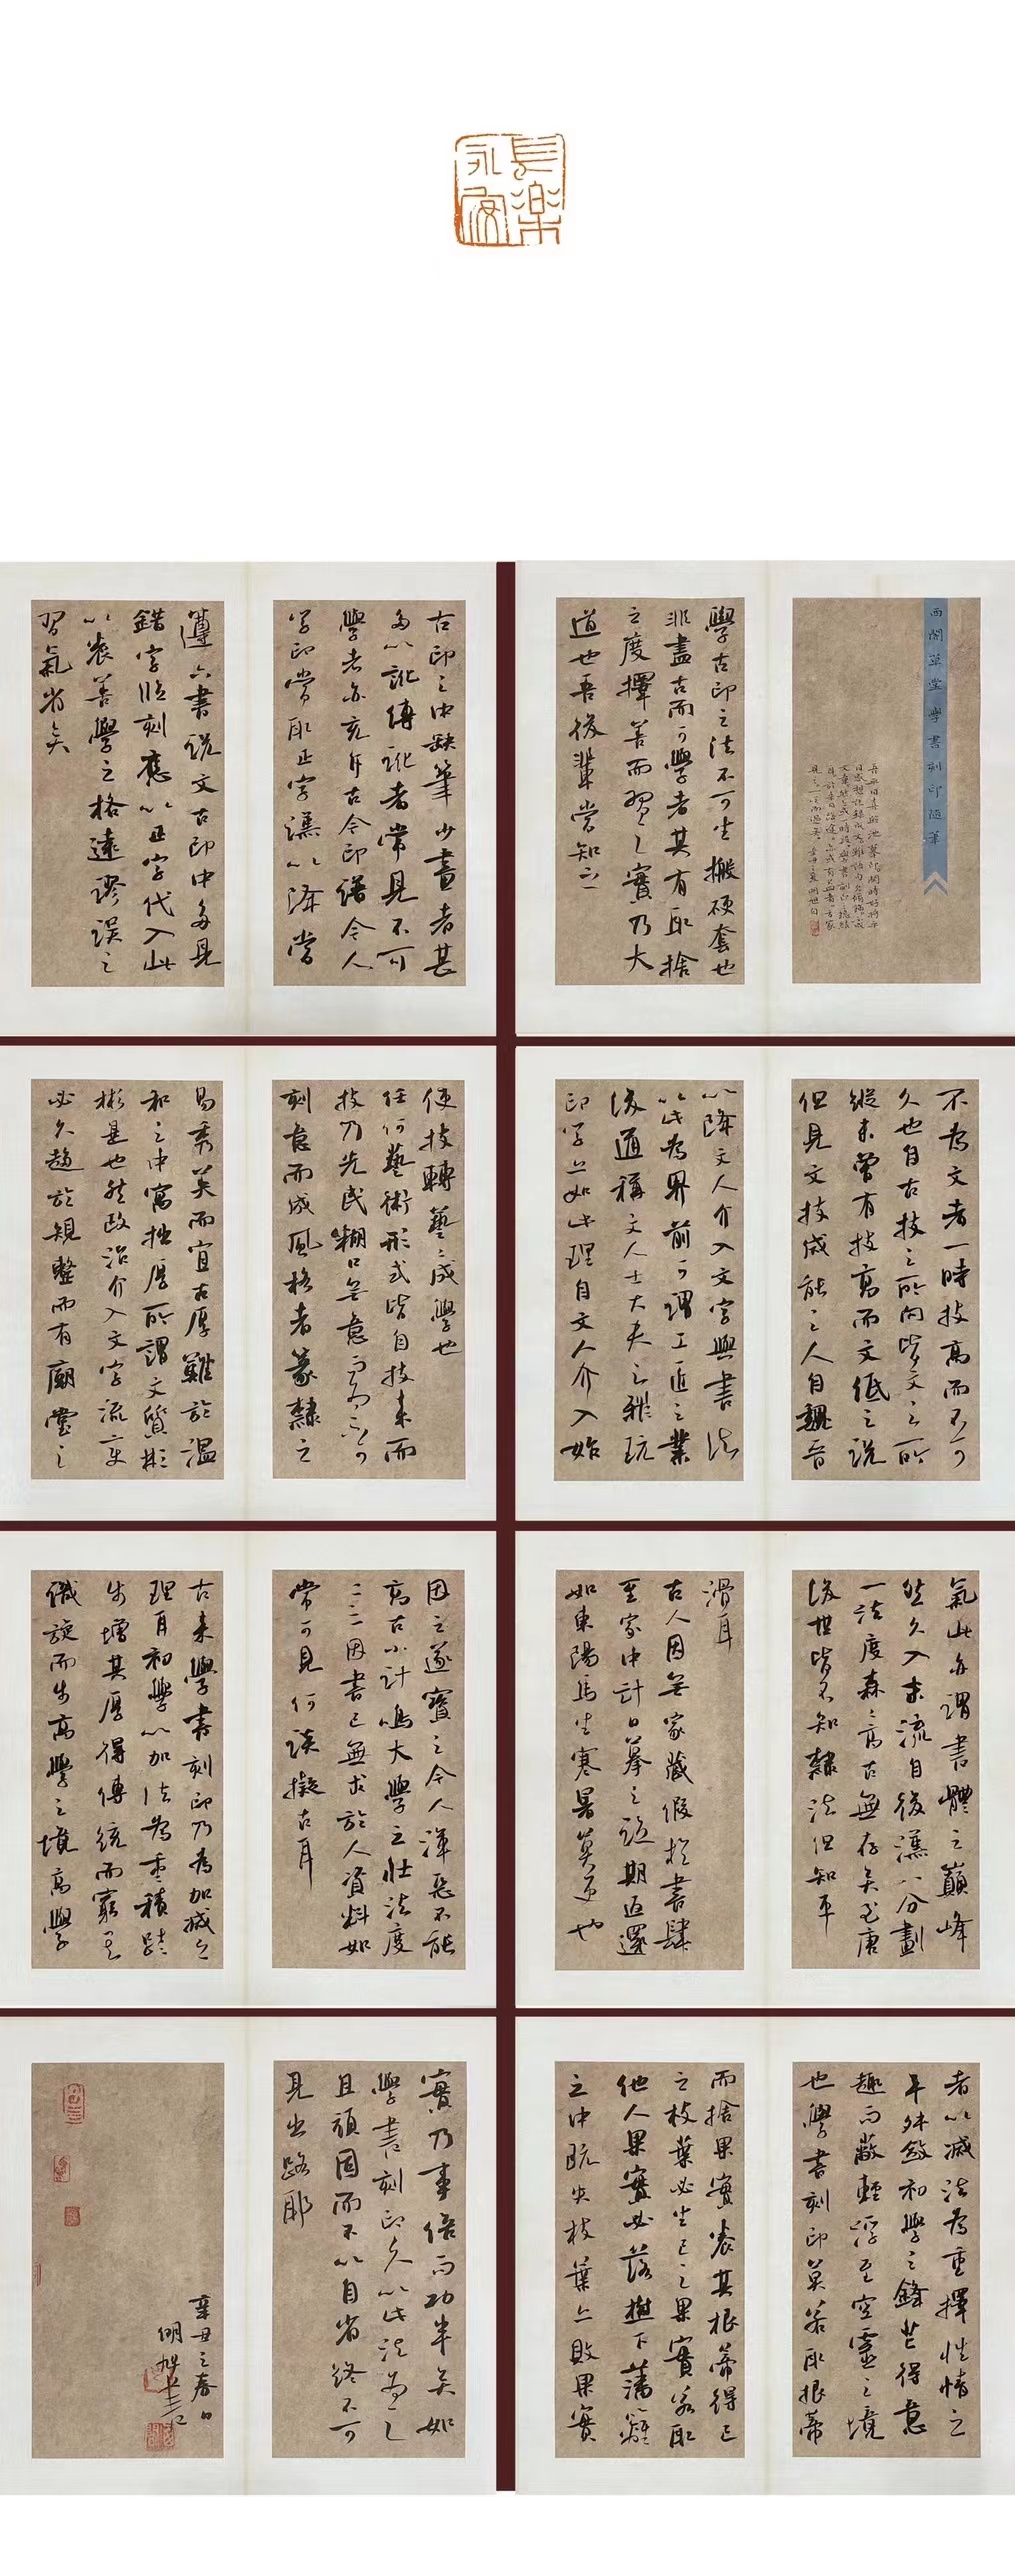 長樂
永安
西閣草堂學書刻印隨筆
學古印之法不可生搬硬套也
非盡古而可學者其有取捨
之度擇善而習之實乃大
道也吾後輩當知之
古印之中缺筆少畫者甚
多以訛傳訛者常見不可
學者亦充斥古今印譜今人
學印當取正字漢以降當
遵六書說文古印中多見
錯字臨刻應以正字代入此
以裘善學之格遠謬誤之
習氣省矣
不為文者一時技高而不可
久也自古技之所向皆文之所
縱未曾有技高而文低之說
但見文技咸能之人自魏晉
以降文人介入文字與書法
以此為界前可謂工匠之業
後道稱文人士大夫之雅玩
印學亦如此理自文人介入始
使技轉藝之成學也
任何藝術形式皆自技來而
技乃先民糊口無意
刻意而成風格者篆隸之
易秀美而宜古厚難於溫
和之中寓拙厚所謂文質彬
彬是也然政治介入文字流變
必久趨於規整而有廟堂之
氣此亦謂書體之巔峰
然久入末流自後漢八分劃
一法度森森高古無存矣至唐
後世皆不知隸法但知平
滑耳
古人因無家藏假於書肆
至家中計日摹之延期返還
如東陽馬生寒暑莫更也
因之遂寶之今人渾惡不能
高古小計鳴大學之壯法度
一二因書已無求於人資料如
常可見何談擬古耳
古來學書刻印乃為加減之
理自初學以加法為重積跬
步增其厚得傳統而窮其
微旋而步高學之境高學
者以減法為重擇性情之
平外斂初學之鋒芒得意
趣而敝輕浮至空靈之境
也學書刻印莫若取根蒂
而捨果實裘其根蒂得已
之枝葉必生已之果實若取
他人果實必落樹下藩籬
之中既失枝葉亦敗果實
實乃事倍而功半矣如
學書刻印久以此法為之
且頑固而不以自省終不可
見出路耶
辛丑之春日